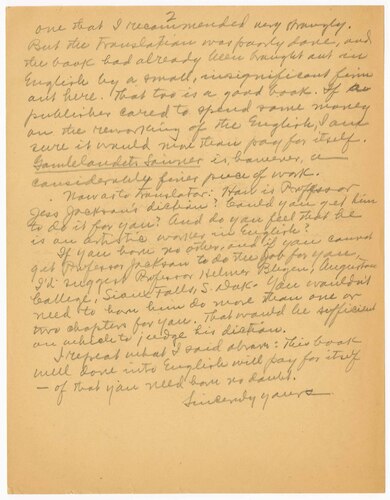 2
one that I recommended very strongly.
But the translation was poorly done, and
the book had already been brought out in
English by a small, insignificant firm
out here. That too is a good book. If a
publisher cared to spend some money
on the reworking of the English, I am
sure it would more than pay for itself.
Gamlelandets Sønner is however, a
considerably finer piece of work.
Now as to translator: How is Professor
Jess Jackson's diction? Could you get him
to do it for you? And do you feel that he
is an artistic worker in English?
If you have no other, and if you cannot
get Professor Jackson to do the job for you,
I'd suggest Professor Helmer Blegen, Augustana
College, Sioux Falls, S. Dak. You wouldn't
need to have him do more than one or
two chapters for you. That would be sufficient
on which to judge his diction.
I repeat what I said above: This book
well done into English will pay for itself
— of that you need have no doubt.
Sincerely yours